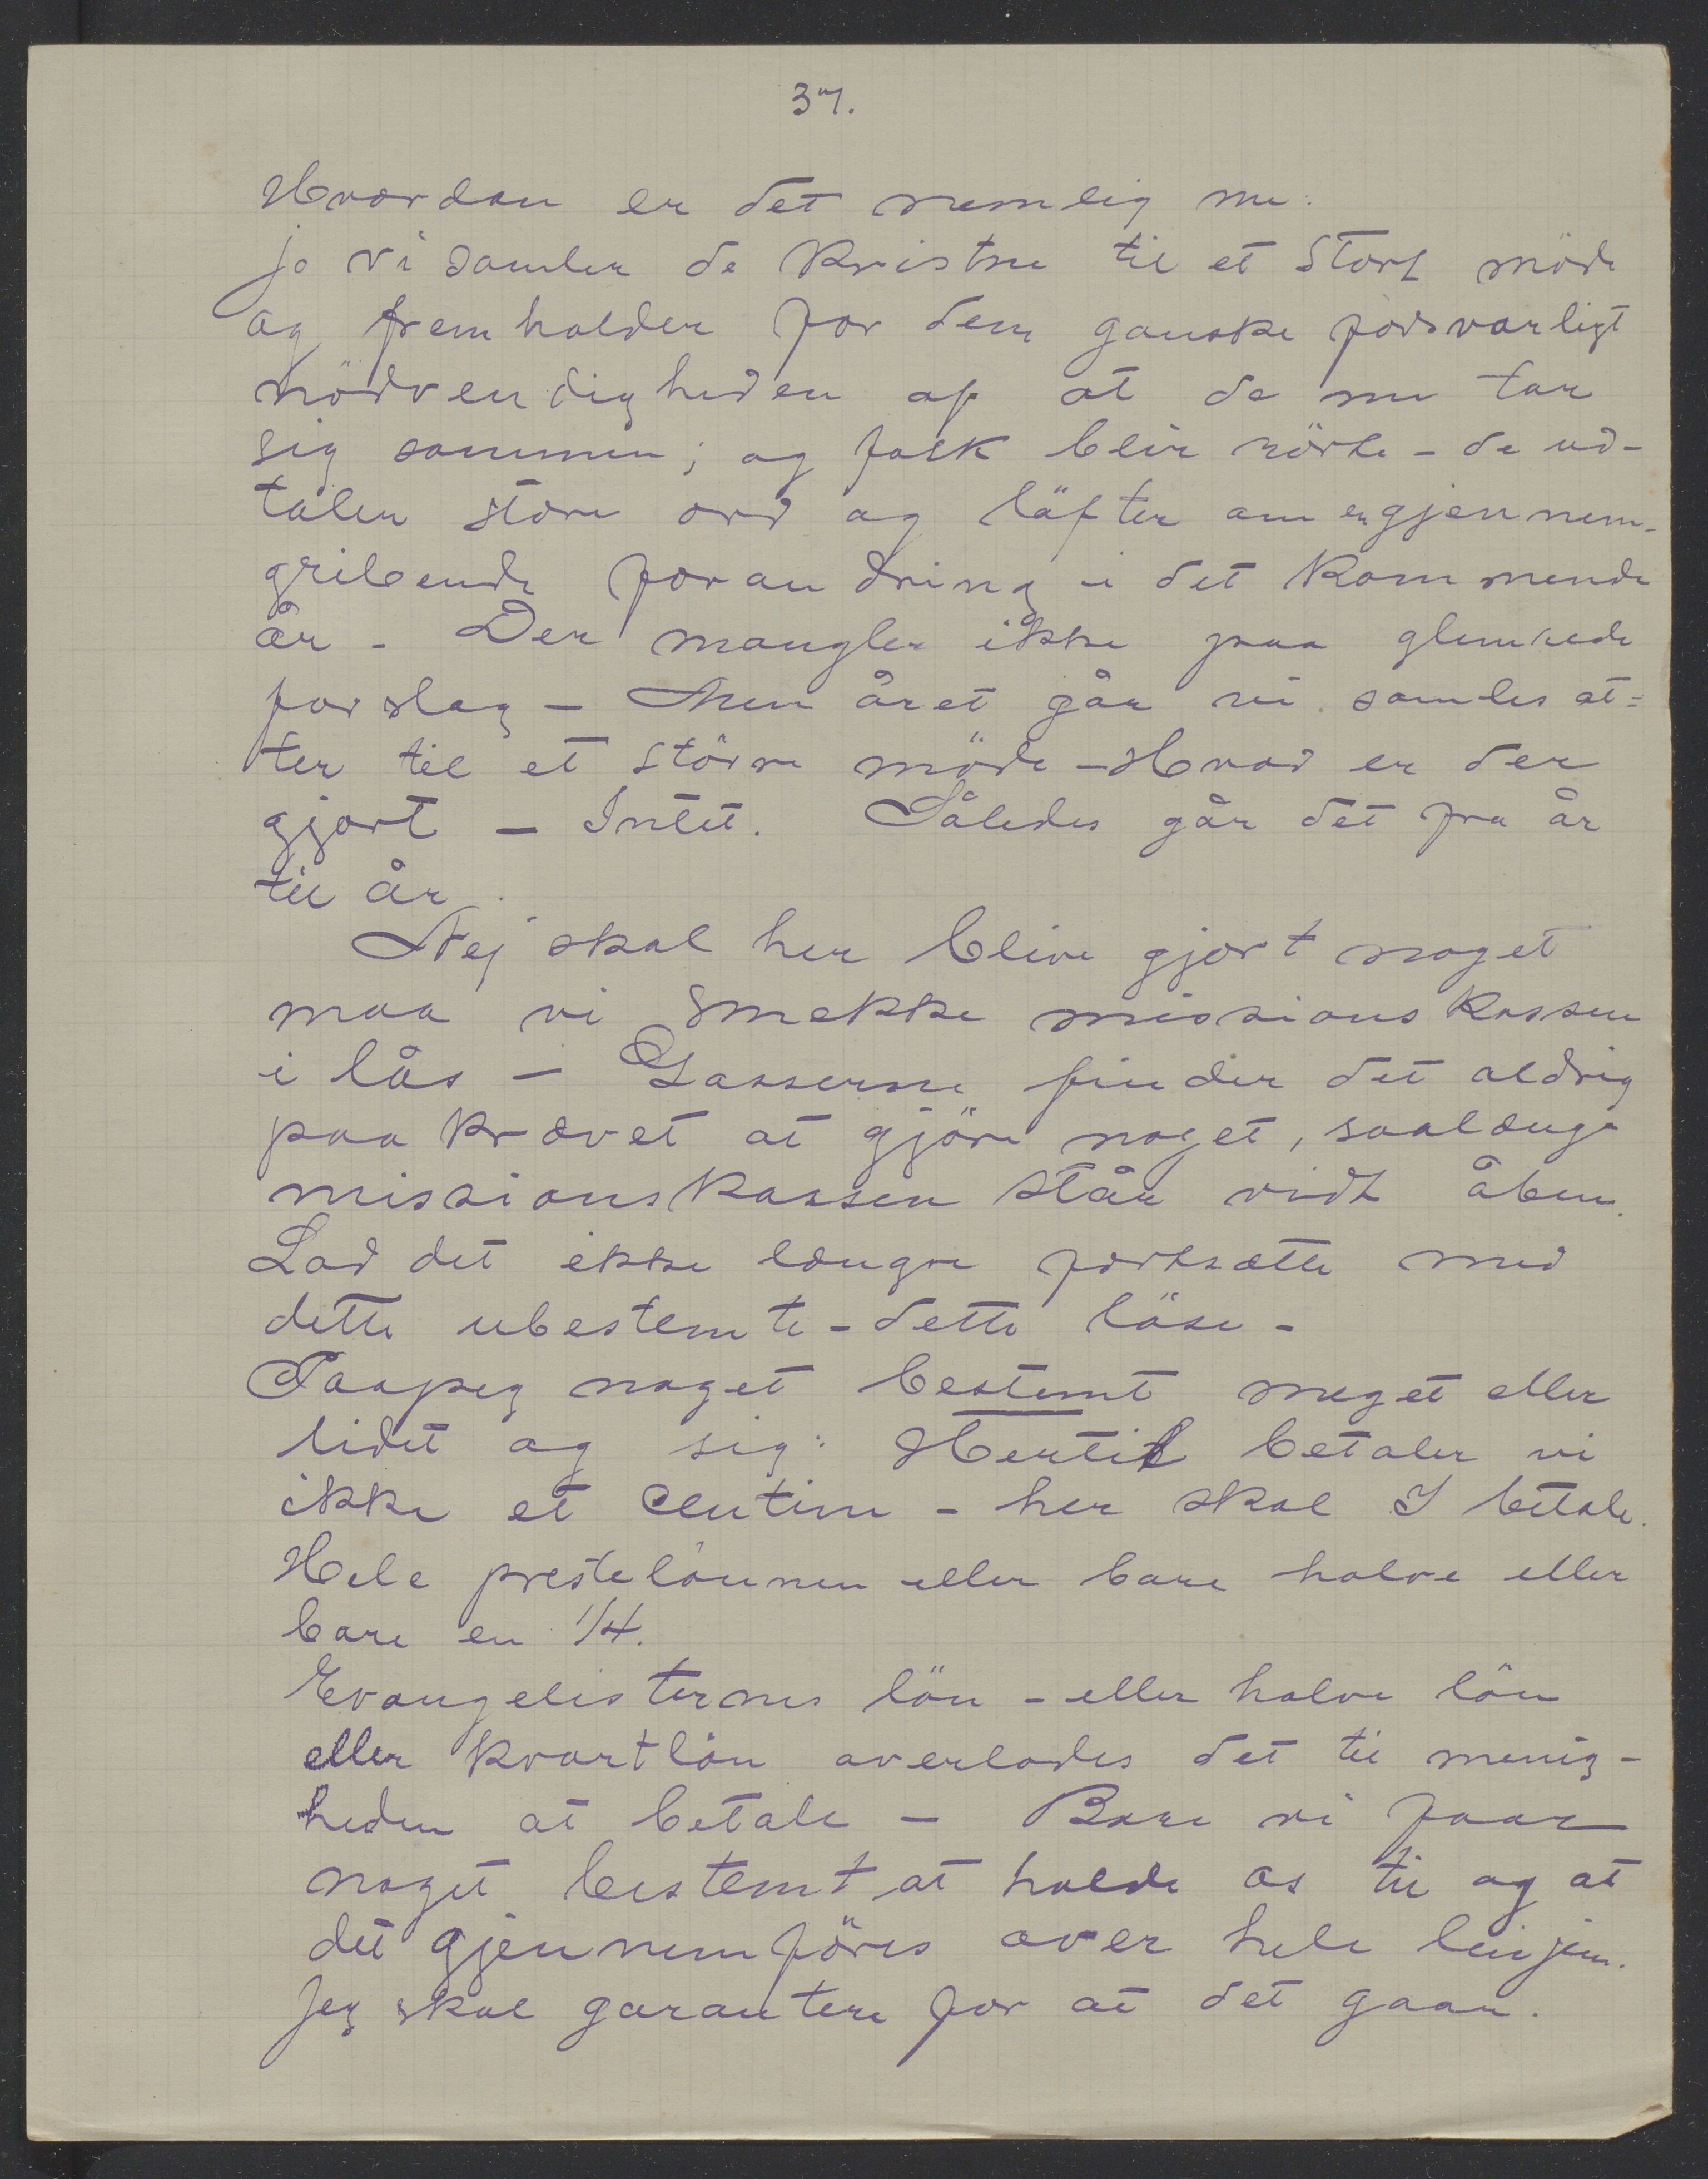 37.
Hvordan er det nemlig nu:
jo vi samler de kristne til et stort möde
og fremholder for dem ganske forsvarligt
nödvendigheden af at de nu tar
sig sammen; og folk blir rörte - de ud-
taler store ord og löfter om en gjennem-
gribende forandring i det kommende
år - Der mangler ikke paa glimrede
forslag - Men året går vi samles at=
ter til et större möde - Hvad er der
gjort - Intet. Således går det fra år
til år.
Nej skal her blive gjort noget
maa vi smekke missionskassen
i lås - Gasserne finder det aldrig
paakrævet at gjöre noget, saalænge
missionskassen står vidt åben.
Lad det ikke længre fortsætte med
dette ubestemte - dette löse -
Paapeg noget bestemt meget eller
lidet og sig: Hertil betaler vi
ikke et centim - her skal I betale.
Hele prestelönnen eller bare halve eller
bare en 1/4.
Evangelisternes lön - eller halve lön
eller kvartlön overlades det til menig-
heden at betale - Bare vi faar
noget bestemt at holde os til og at
det gjennemföres over hele linjen.
Jeg skal garantere for at det gaar.